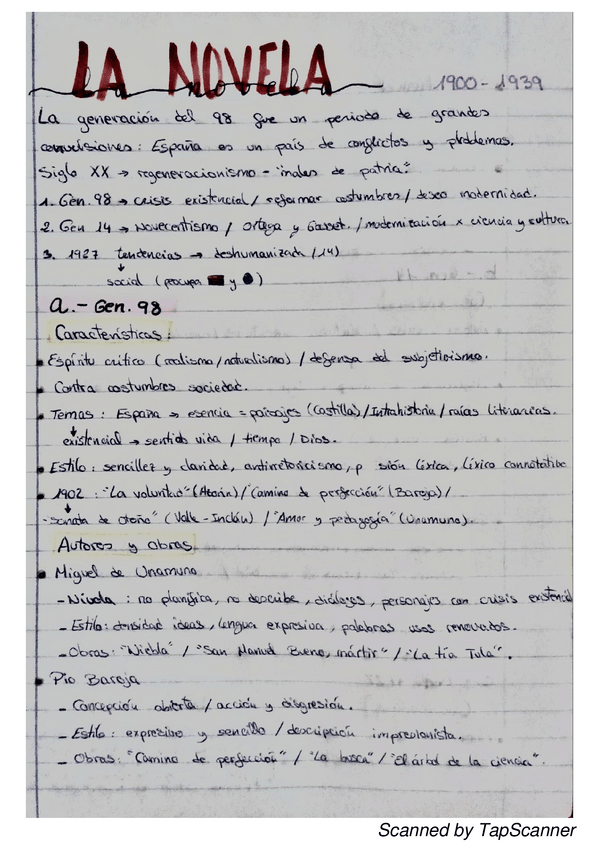 LA NOVELA
la novela
1900-1939
La generación del 98 fue un periodo de grandes
convulsiones: España es un país de conflictos y problemas.
Siglo XX → regeneracionismo - "males de patria."
1. Gen. 98 → crisis existencial / reformar costumbres / deseo modernidad.
2. Gen 14 → Novecentismo / Ortega y Gasset. / modernización x ciencia y cultura
3. 1927 tendencias → deshumanizada /14)
↓
social (preocupa y )
a.- Gen. 98
Características:
• Espíritu crítico (realismo/naturalismo) / defensa del subjetivismo.
• Contra costumbres sociedad.
• Temas: España → esencia = paisajes (Castilla)/Intrahistoria / raíces literarias.
existencial → sentido vida / tiempo / Dios.
• Estilo: sencillez y claridad, antirretoricismo, p sión léxica, léxico connotativo
• 1902: "La voluntad" (Azorín)/"Camino de perfección" (Baroja)/
↓
-"Sonata de otoño" (Valle-Inclán) / "Amor y pedagogía" (Unamuno).
Autores y obras
• Miguel de Unamuno
- Nivola: no planifica, no describe, diálogos, personajes con crisis existencial
- Estilo: densidad ideas, lengua expresiva, palabras usos renovados.
- Obras: "Niebla" / "San Manuel Bueno, mártir" / "La tía Tula".
• Pío Baroja
- Concepción abierta / acción y disgresión.
- Estilo: expresivo y sencillo / descripción impresionista.
- Obras: "Camino de perfección" / "La busca" / "El árbol de la ciencia".
Scanned by TapScanner